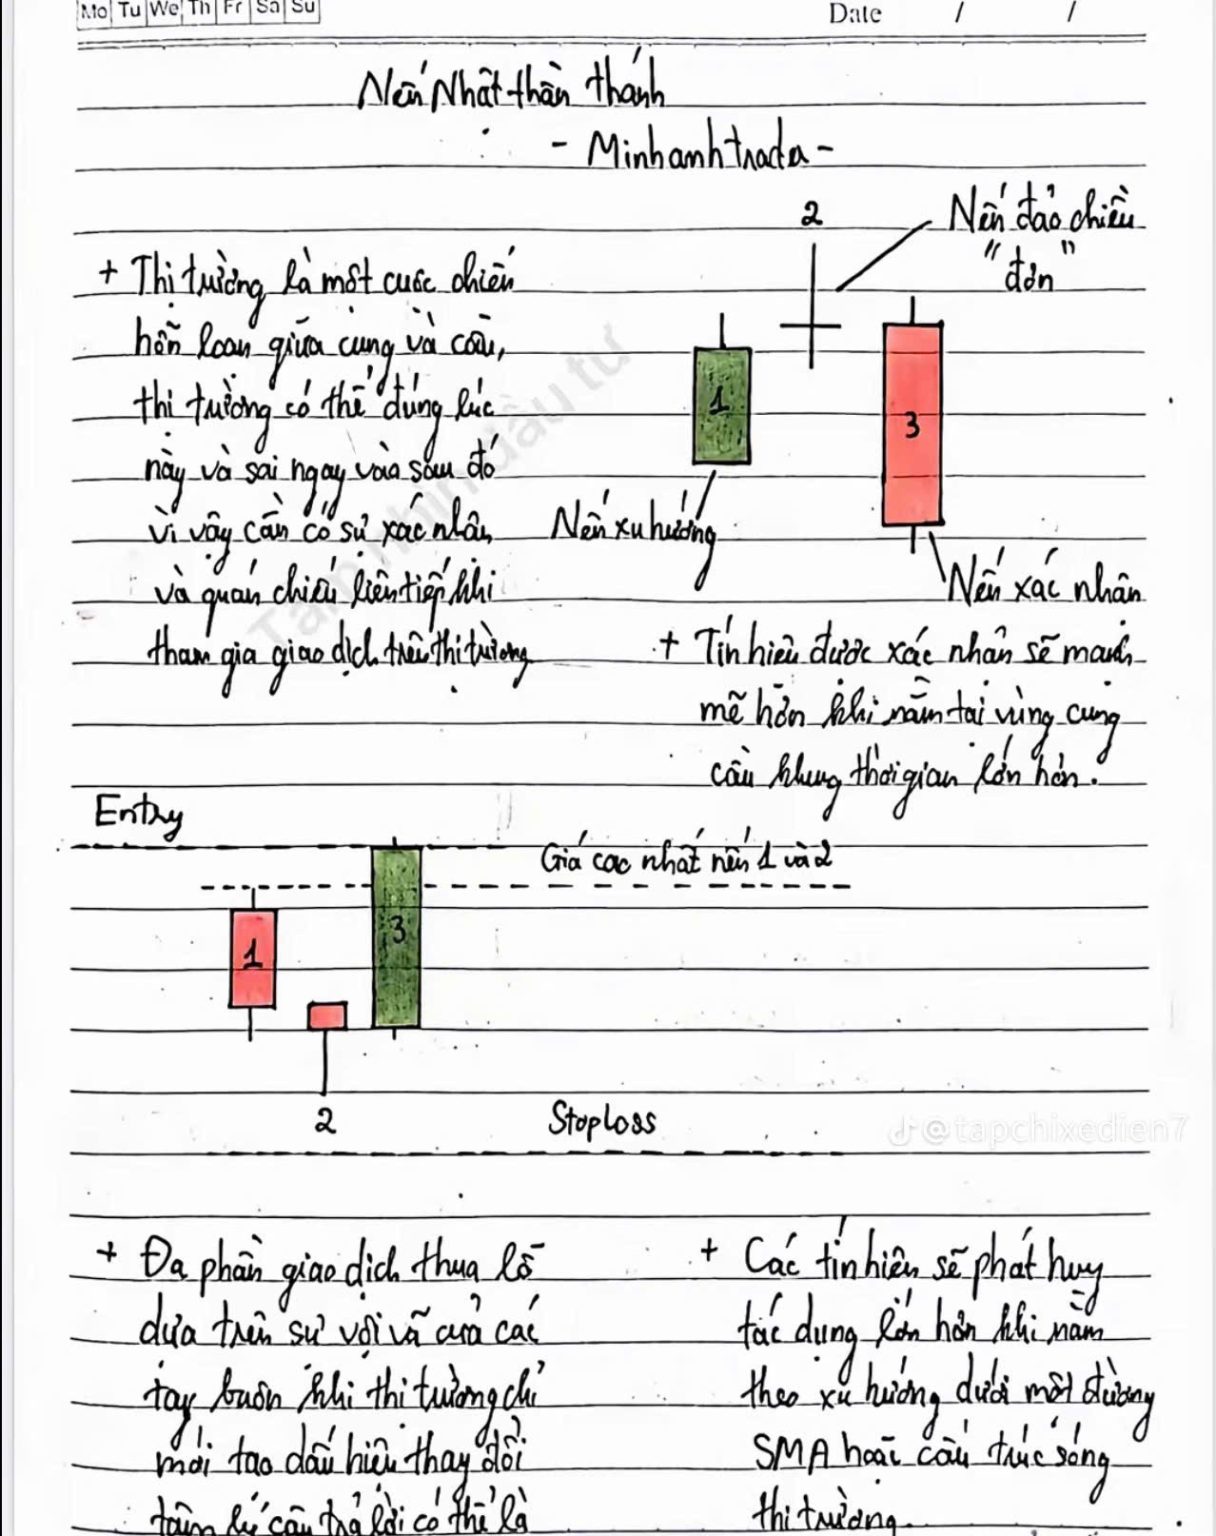 Mo Tu We Th Fr Sa Su
Date / /
Nến Nhật thần thánh
- Minhanhtrada -
2
Nến đảo chiều
"đơn"
+ Thị trường là một cuộc chiến
hỗn loạn giữa cung và cầu,
thị trường có thể đúng lúc
này và sai ngay vào sau đó
vì vậy cần có sự xác nhận
và quán chiếu liên tiếp khi
tham gia giao dịch trên thị trường
1
3
Nến xu hướng
Nến xác nhân
+ Tín hiệu được xác nhận sẽ mạnh
mẽ hơn khi nằm tại vùng cung
cầu khung thời gian lớn hơn.
Entry
Giá cao nhất nến 1 và 2
1
3
2
Stoploss
@tapchixedien7
Tầm nhìn đầu tư
+ Đa phần giao dịch thua lỗ
dựa trên sự vội vã của các
tay buôn khi thị trường chỉ
mới tạo dấu hiệu thay đổi
tâm lý câu trả lời có thể là
+ Các tín hiệu sẽ phát huy
tác dụng lớn hơn khi nằm
theo xu hướng dưới một đường
SMA hoặc cấu trúc sóng
thị trường.